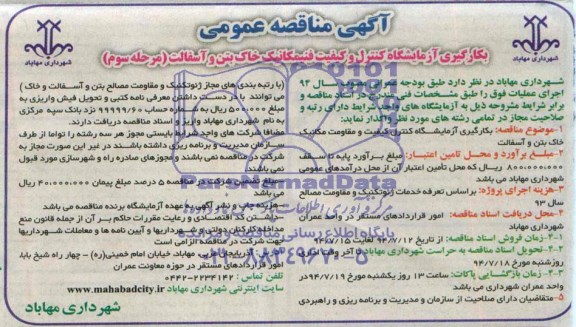 آگهی مناقصه عمومی
بکارگیری آزمایشگاه کنترل و کیفیت فنی مکانیک خاک بتن و آسفالت (مرحله سوم)
شهرداری مهاباد
شهرداری مهاباد
شهرداری مهاباد در نظر دارد طبق بودجه سال ۹۴
اجرای عملیات فوق را طبق مشخصات فنی اسناد مناقصه و
برابر شرایط مشروحه ذیل به آزمایشگاه های واجد شرایط دارای رتبه و
صلاحیت مجاز در تمامی رشته های مورد نظر واگذار نماید:
۱-موضوع مناقصه: بکارگیری آزمایشگاه کنترل کیفیت و مقاومت مکانیک
خاک بتن و آسفالت
۲-مبلغ برآورد و محل تامین اعتبار: مبلغ برآورد پایه تا سقف
۸۰۰۰۰۰۰۰۰ ریال که محل تامین اعتبار آن از محل درآمدهای عمومی
شهرداری مهاباد می باشد
۳-هزینه اجرای پروژه: براساس تعرفه خدمات ژئوتکنیک و مقاومت مصالح
سال ۹۳
۴-محل دریافت اسناد مناقصه: امور قراردادهای مستقر در واحد عمران
شهرداری مهاباد
زمان فروش اسناد مناقصه: از تاریخ ۹۴/۷/۱۲ لغایت ۹۴/۷/۱۵
تحویل اسناد مناقصه به حراست شهرداری مهاباد: آخر وقت اداری
روز شنبه مورخ ۹۴/۷/۱۸
زمان بازگشایی پاکات: ساعت ۱۳ روز یکشنبه مورخ ۹۴/۷/۱۹ در
واحد عمران شهرداری می باشد
۵-متقاضیان دارای صلاحیت از سازمان و مدیریت و برنامه ریزی و راهبردی
(با رتبه بندی های مجاز ژئوتکنیک و مقاومت مصالح بتن و آسفالت و خاک)
می توانند با در دست داشتن معرفی نامه کتبی و تحویل فیش واریزی به
مبلغ ۵۰۰۰۰۰ ریال به شماره حساب ۹۹۹۹۹/۶۰ نزد بانک سپه مرکزی
به نام شهرداری مهاباد واریز و اسناد مناقصه دریافت دارند.
مضافا شرکت های واجد شرایط بایستی مجوز هر سه رشته را تواما از طرف
سازمان مدیریت و برنامه ریزی داشته باشند در غیر این صورت مجاز به
شرکت در مناقصه نمی باشند و مجوزهای صادره راه و شهرسازی مورد قبول
نمی باشد.
شرکت در مناقصه ۵ درصد مبلغ پیمان ۴۰۰۰۰۰۰۰ ریال
می باشد.
هزینه چاپ و نشر آگهی به عهده آزمایشگاه برنده مناقصه می باشد
داشتن کد اقتصادی و رعایت مقررات حاکم بر آن از جمله قانون منع
مداخله کارکنان دولتی و شهرداریها و آیین نامه ها و معاملات شهرداریها
جهت شرکت در مناقصه الزامی است
آذربایجان غربی، مهاباد، خیابان امام خمینی(ره) – چهار راه شیخ بابا،
امور قراردادهای مستقر در حوزه معاونت عمران
تلفن تماس: ۲۲۳۴۱۴۲-۰۴۴۲
سایت اینترنتی شهرداری مهاباد www.mahabadcity.ir
شهرداری مهاباد
ParsNamadData
پایگاه اطلاع رسانی مناقصه مزایده